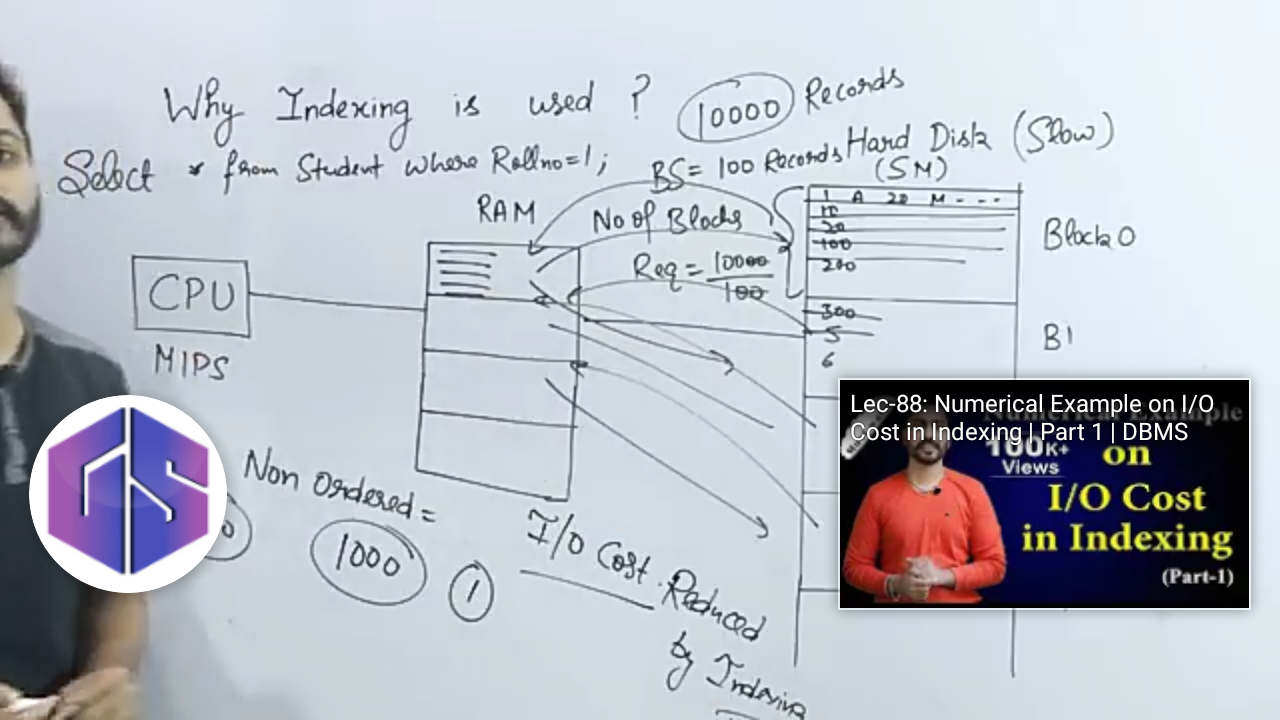 Why Indexing is used ? 10000 Records
Select * from Student where Rollno=1;
BS= 100 Records
Hard Disk (Slow)
(SM)
RAM
No of Blocks
Req = 10000
100
CPU
MIPS
1 A 20 M - - -
10
20
100
200
Block 0
300
5
6
B1
Non Ordered =
1000
1
I/O Cost Reduced
by Indexing
Lec-88: Numerical Example on I/O
Cost in Indexing | Part 1 | DBMS
100K+
Views
on
I/O Cost
in Indexing
(Part-1)